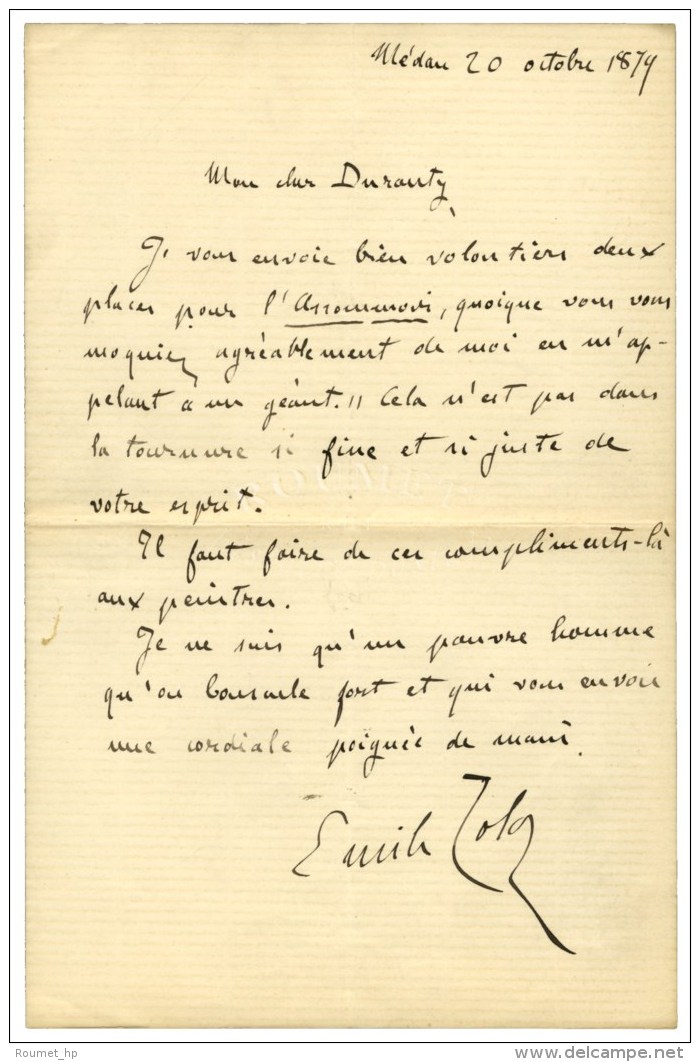 Médan 20 octobre 1879
Mon cher Duranty,
Je vous envoie bien volontiers deux
places pour l'Assommoir, quoique vous vous
moquiez agréablement de moi en m'ap-
pelant un géant. Cela n'est pas dans
la tournure si fine et si juste de
votre esprit.
Il faut faire de ces compliments-là
aux peintres.
Je ne suis qu'un pauvre homme
qu'on bouscule fort et qui vous envoie
une cordiale poignée de main.
Emile Zola
Roumet_hp
delcampe.net